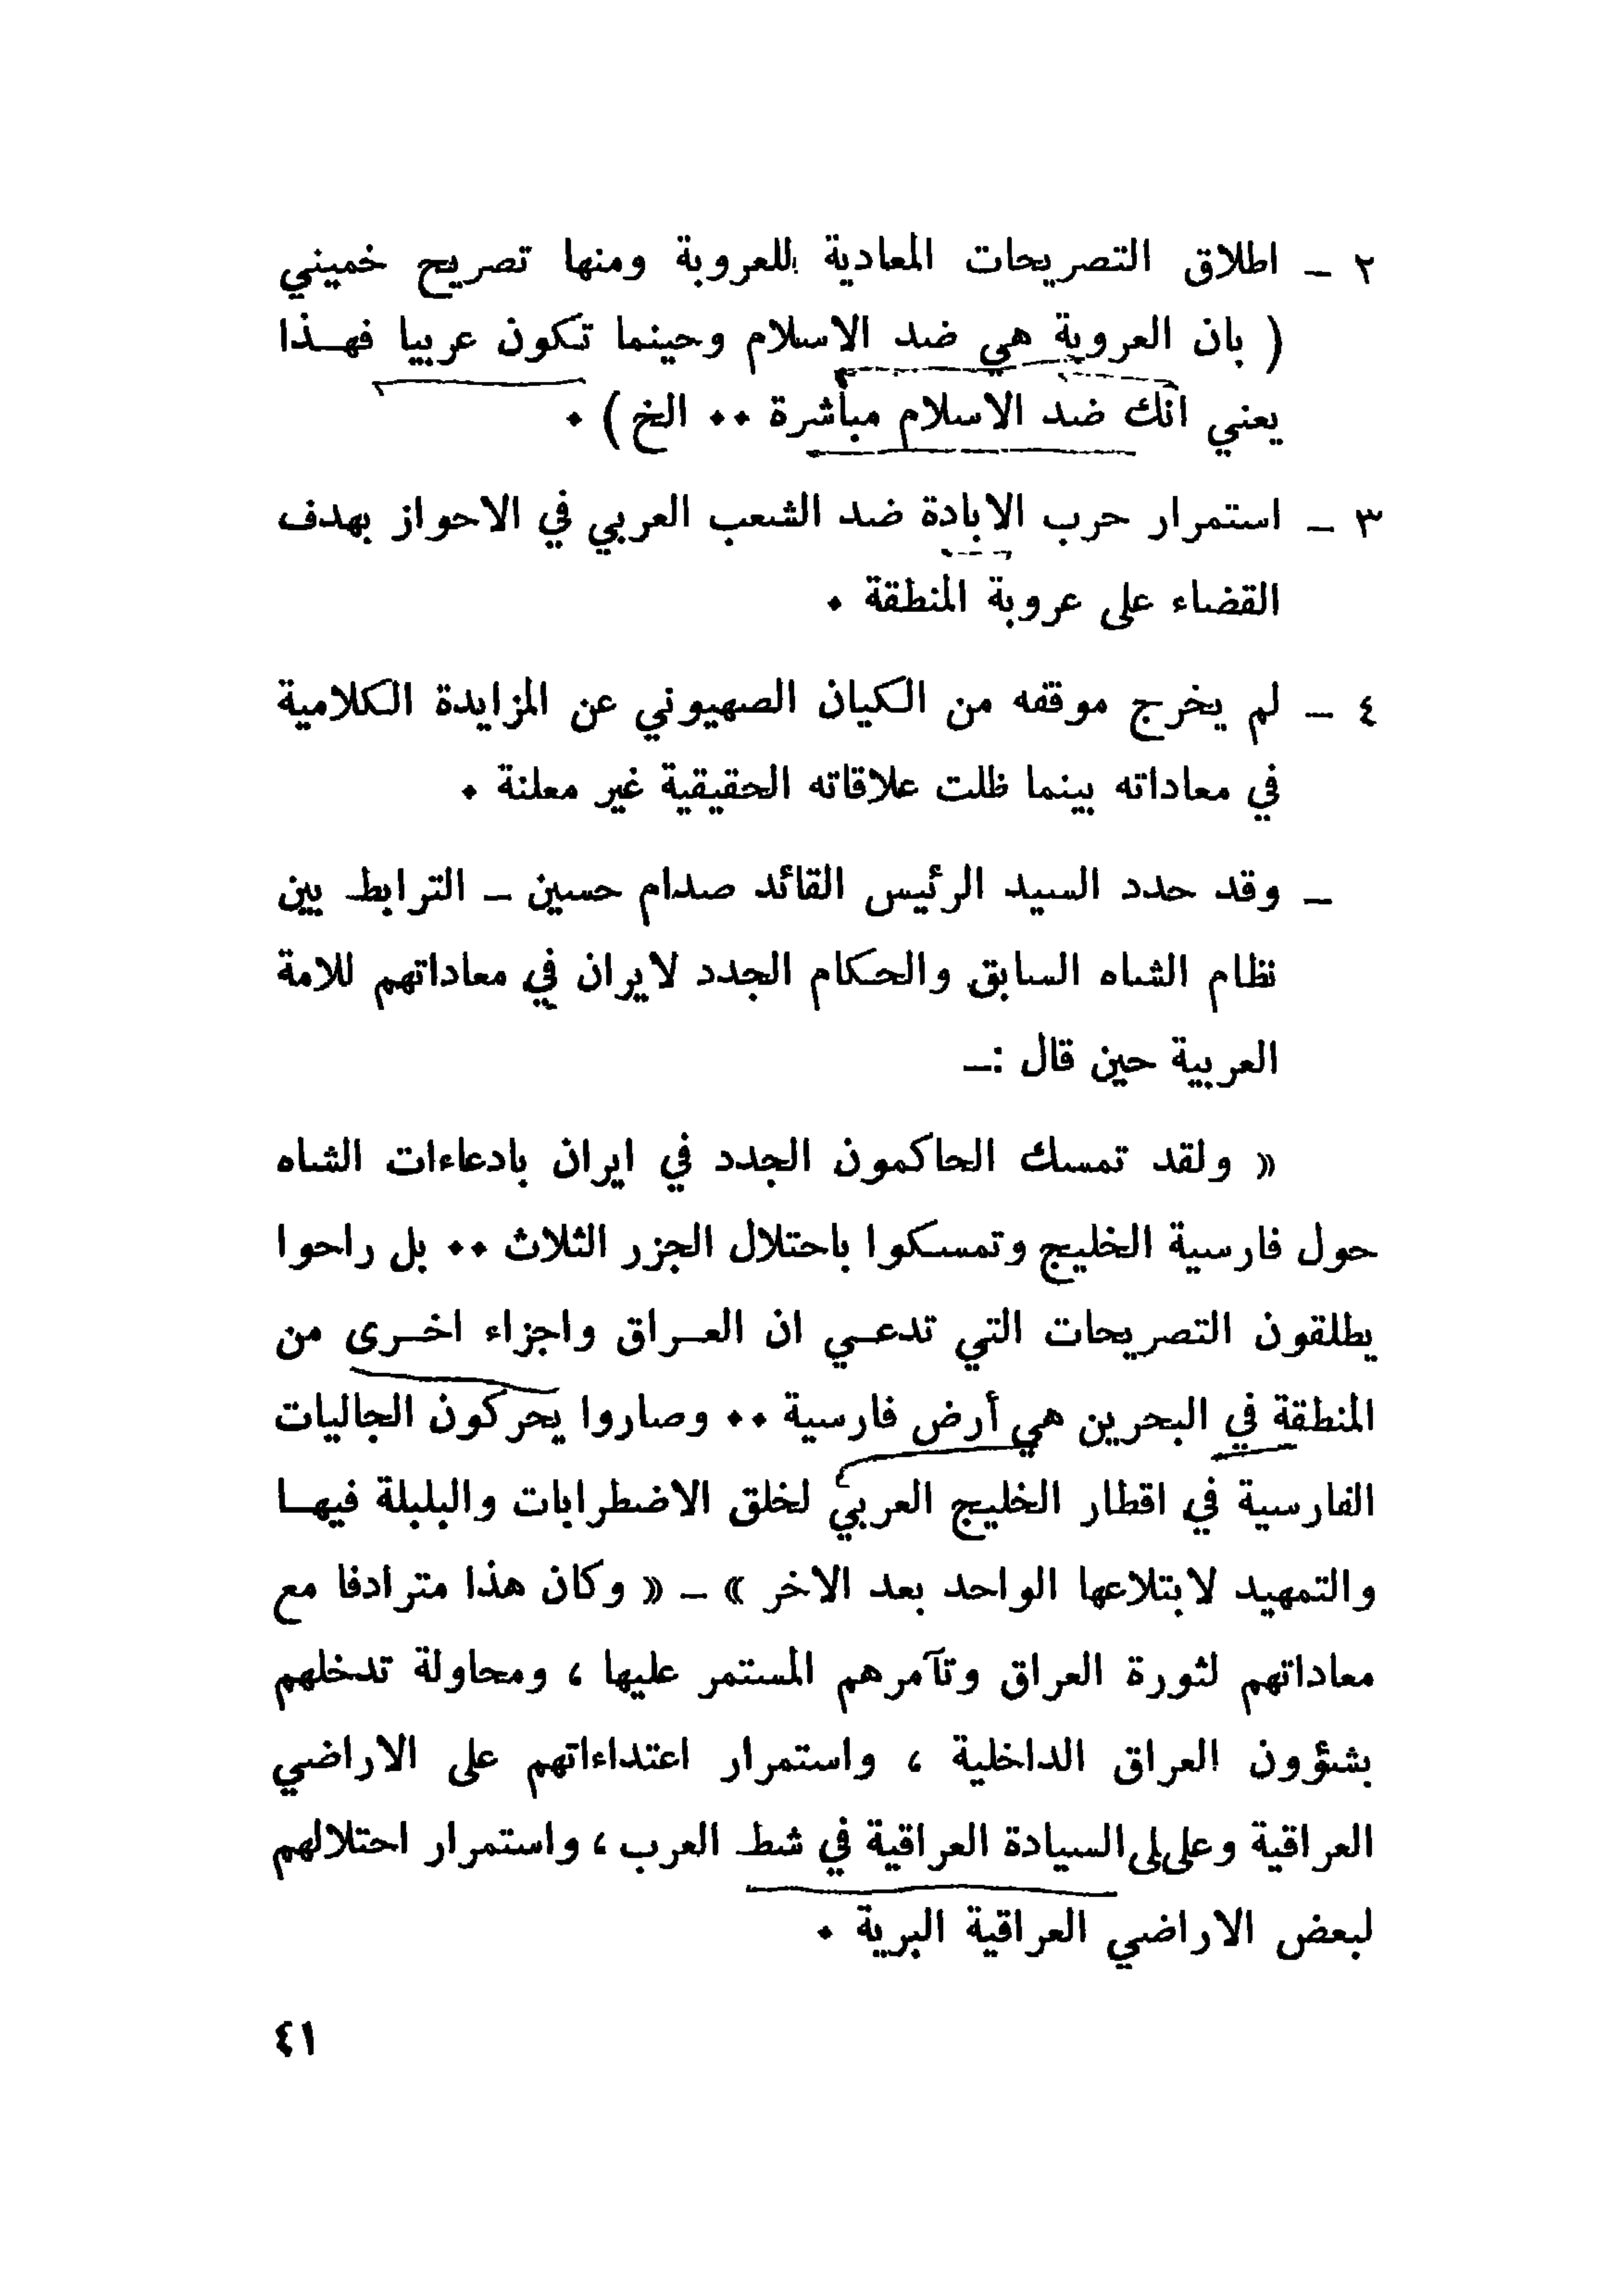 ٢ – اطلاق التصريحات المعادية للعروبة ومنها تصريح خميني
( بان العروبة هي ضد الاسلام وحينما تكون عربيا فهـذا
يعني انك ضد الاسلام مباشرة ٠٠ الخ ) ٠
٣ – استمرار حرب الابادة ضد الشعب العربي في الاحواز بهدف
القضاء على عروبة المنطقة ٠
٤ – لم يخرج موقفه من الكيان الصهيوني عن المزايدة الكلامية
في معاداته بينما ظلت علاقاته الحقيقية غير معلنة ٠
– وقد حدد السيد الرئيس القائد صدام حسين – الترابط بين
نظام الشاه السابق والحكام الجدد لايران في معاداتهم للامة
العربية حين قال :–
« ولقد تمسك الحاكمون الجدد في ايران بادعاءات الشاه
حول فارسية الخليج وتمسكوا باحتلال الجزر الثلاث ٠٠ بل راحوا
يطلقون التصريحات التي تدعـي ان العـراق واجزاء اخـرى من
المنطقة في البحرين هي أرض فارسية ٠٠ وصاروا يحركون الجاليات
الفارسية في اقطار الخليج العربي لخلق الاضطرابات والبلبلة فيهـا
والتمهيد لابتلاعها الواحد بعد الاخر » – « وكان هذا مترادفا مع
معاداتهم لثورة العراق وتآمرهم المستمر عليها ، ومحاولة تدخلهم
بشؤون العراق الداخلية ، واستمرار اعتداءاتهم على الاراضي
العراقية وعلى السيادة العراقية في شط العرب ، واستمرار احتلالهم
لبعض الاراضي العراقية البرية ٠
٤١